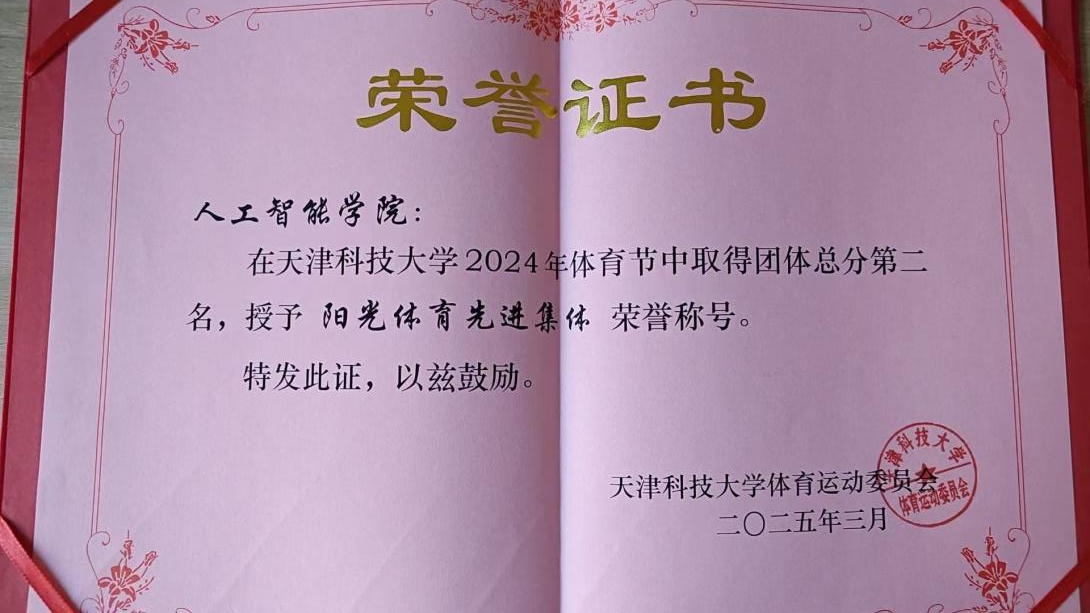 荣誉证书
人工智能学院：
在天津科技大学2024年体育节中取得团体总分第二
名，授予 阳光体育先进集体 荣誉称号。
特发此证，以兹鼓励。
天津科技大学体育运动委员会
二〇二五年三月
天津科技大学
体育运动委员会